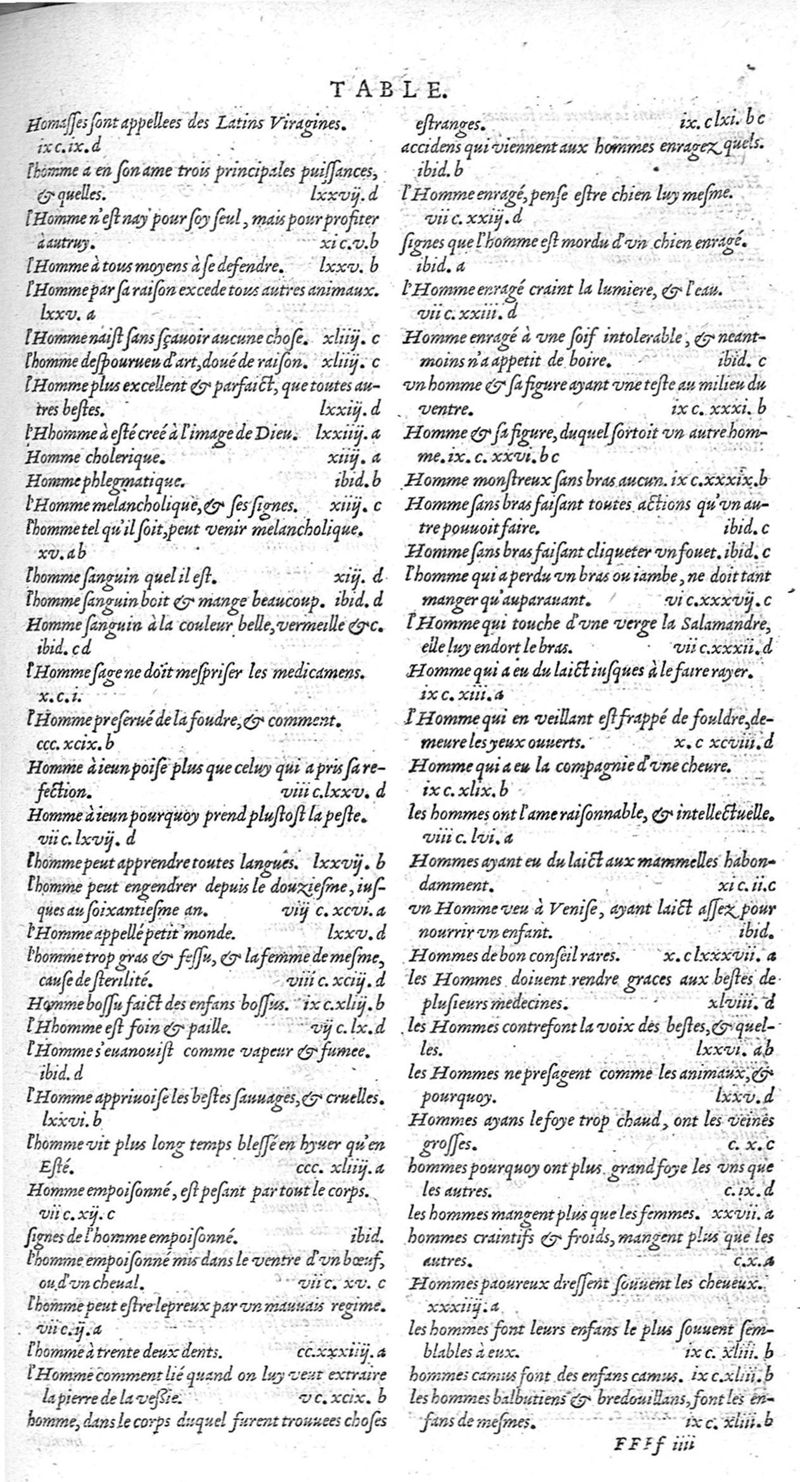 TABLE.
Homasses sont appellees des Latins Viragines.
ix c. ix. d
l'homme a en son ame trois principales puissances,
& quelles. lxxvij. d
l'Homme n'est nay pour soy seul, mais pour profiter
à autruy. xi c. v. b
l'Homme à tous moyens à se defendre. lxxv. b
l'Homme par sa raison excede tous autres animaux.
lxxv. a
l'Homme naist sans sçauoir aucune chose. xliiij. c
l'homme despourueu d'art, doué de raison. xliiij. c
l'Homme plus excellent & parfaict, que toutes au-
tres bestes. lxxiij. d
l'Hhomme à esté creé à l'image de Dieu. lxxiiij. a
Homme cholerique. xiiij. a
Homme phlegmatique. ibid. b
l'Homme melancholique, & ses signes. xiiij. c
l'homme tel qu'il soit, peut venir melancholique.
xv. a b
l'homme sanguin quel il est. xiij. d
l'homme sanguin boit & mange beaucoup. ibid. d
Homme sanguin à la couleur belle, vermeille &c.
ibid. c d
l'Homme sage ne doit mespriser les medicamens.
x. c. i.
l'Homme preserué de la foudre, & comment.
ccc. xcix. b
Homme à ieun poise plus que celuy qui a pris sa re-
fection. viii c. lxxv. d
Homme à ieun pourquoy prend plustost la peste.
vii c. lxvij. d
l'homme peut apprendre toutes langues. lxxvij. b
l'homme peut engendrer depuis le douziesme, ius-
ques au soixantiesme an. viij c. xcvi. a
l'Homme appellé petit monde. lxxv. d
l'homme trop gras & fessu, & la femme de mesme,
cause de sterilité. viii c. xciij. d
Homme bossu faict des enfans bossus. ix c. xliij. b
l'Hhomme est foin & paille. vij c. lx. d
l'Homme s'euanouist comme vapeur & fumee.
ibid. d
l'Homme appriuoise les bestes sauuages, & cruelles.
lxxvi. b
l'homme vit plus long temps blessé en hyuer qu'en
Esté. ccc. xliiij. a
Homme empoisonné, est pesant par tout le corps.
vii c. xij. c
signes de l'homme empoisonné. ibid.
l'homme empoisonné mis dans le ventre d'vn bœuf,
ou d'vn cheual. vii c. xv. c
l'homme peut estre lepreux par vn mauuais regime.
vii c. ij. a
l'homme à trente deux dents. cc. xxxiiij. a
l'Homme comment lié quand on luy veut extraire
la pierre de la vessie. v c. xcix. b
homme, dans le corps duquel furent trouuees choses
estranges. ix. c lxi. b c
accidens qui viennent aux hommes enragez quels.
ibid. b
l'Homme enragé, pense estre chien luy mesme.
vii c. xxiij. d
signes que l'homme est mordu d'vn chien enragé.
ibid. a
l'Homme enragé craint la lumiere, & l'eau.
vii c. xxiii. d
Homme enragé à vne soif intolerable, & neant-
moins n'a appetit de boire. ibid. c
vn homme & sa figure ayant vne teste au milieu du
ventre. ix c. xxxi. b
Homme & sa figure, duquel sortoit vn autre hom-
me. ix. c. xxvi. b c
Homme monstreux sans bras aucun. ix c. xxxix. b
Homme sans bras faisant toutes actions qu'vn au-
tre pouuoit faire. ibid. c
Homme sans bras faisant cliqueter vn fouet. ibid. c
l'homme qui a perdu vn bras ou iambe, ne doit tant
manger qu'auparauant. vi c. xxxvij. c
l'Homme qui touche d'vne verge la Salamandre,
elle luy endort le bras. vii c. xxxii. d
Homme qui a eu du laict iusques à le faire rayer.
ix c. xiii. a
l'Homme qui en veillant est frappé de fouldre, de-
meure les yeux ouuerts. x. c xcviii. d
Homme qui a eu la compagnie d'vne cheure.
ix c. xlix. b
les hommes ont l'ame raisonnable, & intellectuelle.
viii c. lvi. a
Hommes ayant eu du laict aux mammelles habon-
damment. xi c. ii. c
vn Homme veu à Venise, ayant laict assez pour
nourrir vn enfant. ibid.
Hommes de bon conseil rares. x. c lxxxvii. a
les Hommes doiuent rendre graces aux bestes de
plusieurs medecines. xlviii. d
les Hommes contrefont la voix des bestes, & quel-
les. lxxvi. a b
les Hommes ne presagent comme les animaux, &
pourquoy. lxxv. d
Hommes ayans le foye trop chaud, ont les veines
grosses. c. x. c
hommes pourquoy ont plus grand foye les vns que
les autres. c. ix. d
les hommes mangent plus que les femmes. xxvii. a
hommes craintifs & froids, mangent plus que les
autres. c. x. a
Hommes paoureux dressent souuent les cheueux.
xxxiij. a
les hommes font leurs enfans le plus souuent sem-
blables à eux. ix c. xliii. b
hommes camus font des enfans camus. ix c. xliii. b
les hommes balbutiens & bredouillans, font les en-
fans de mesmes. ix c. xliii. b
FFFf iiii